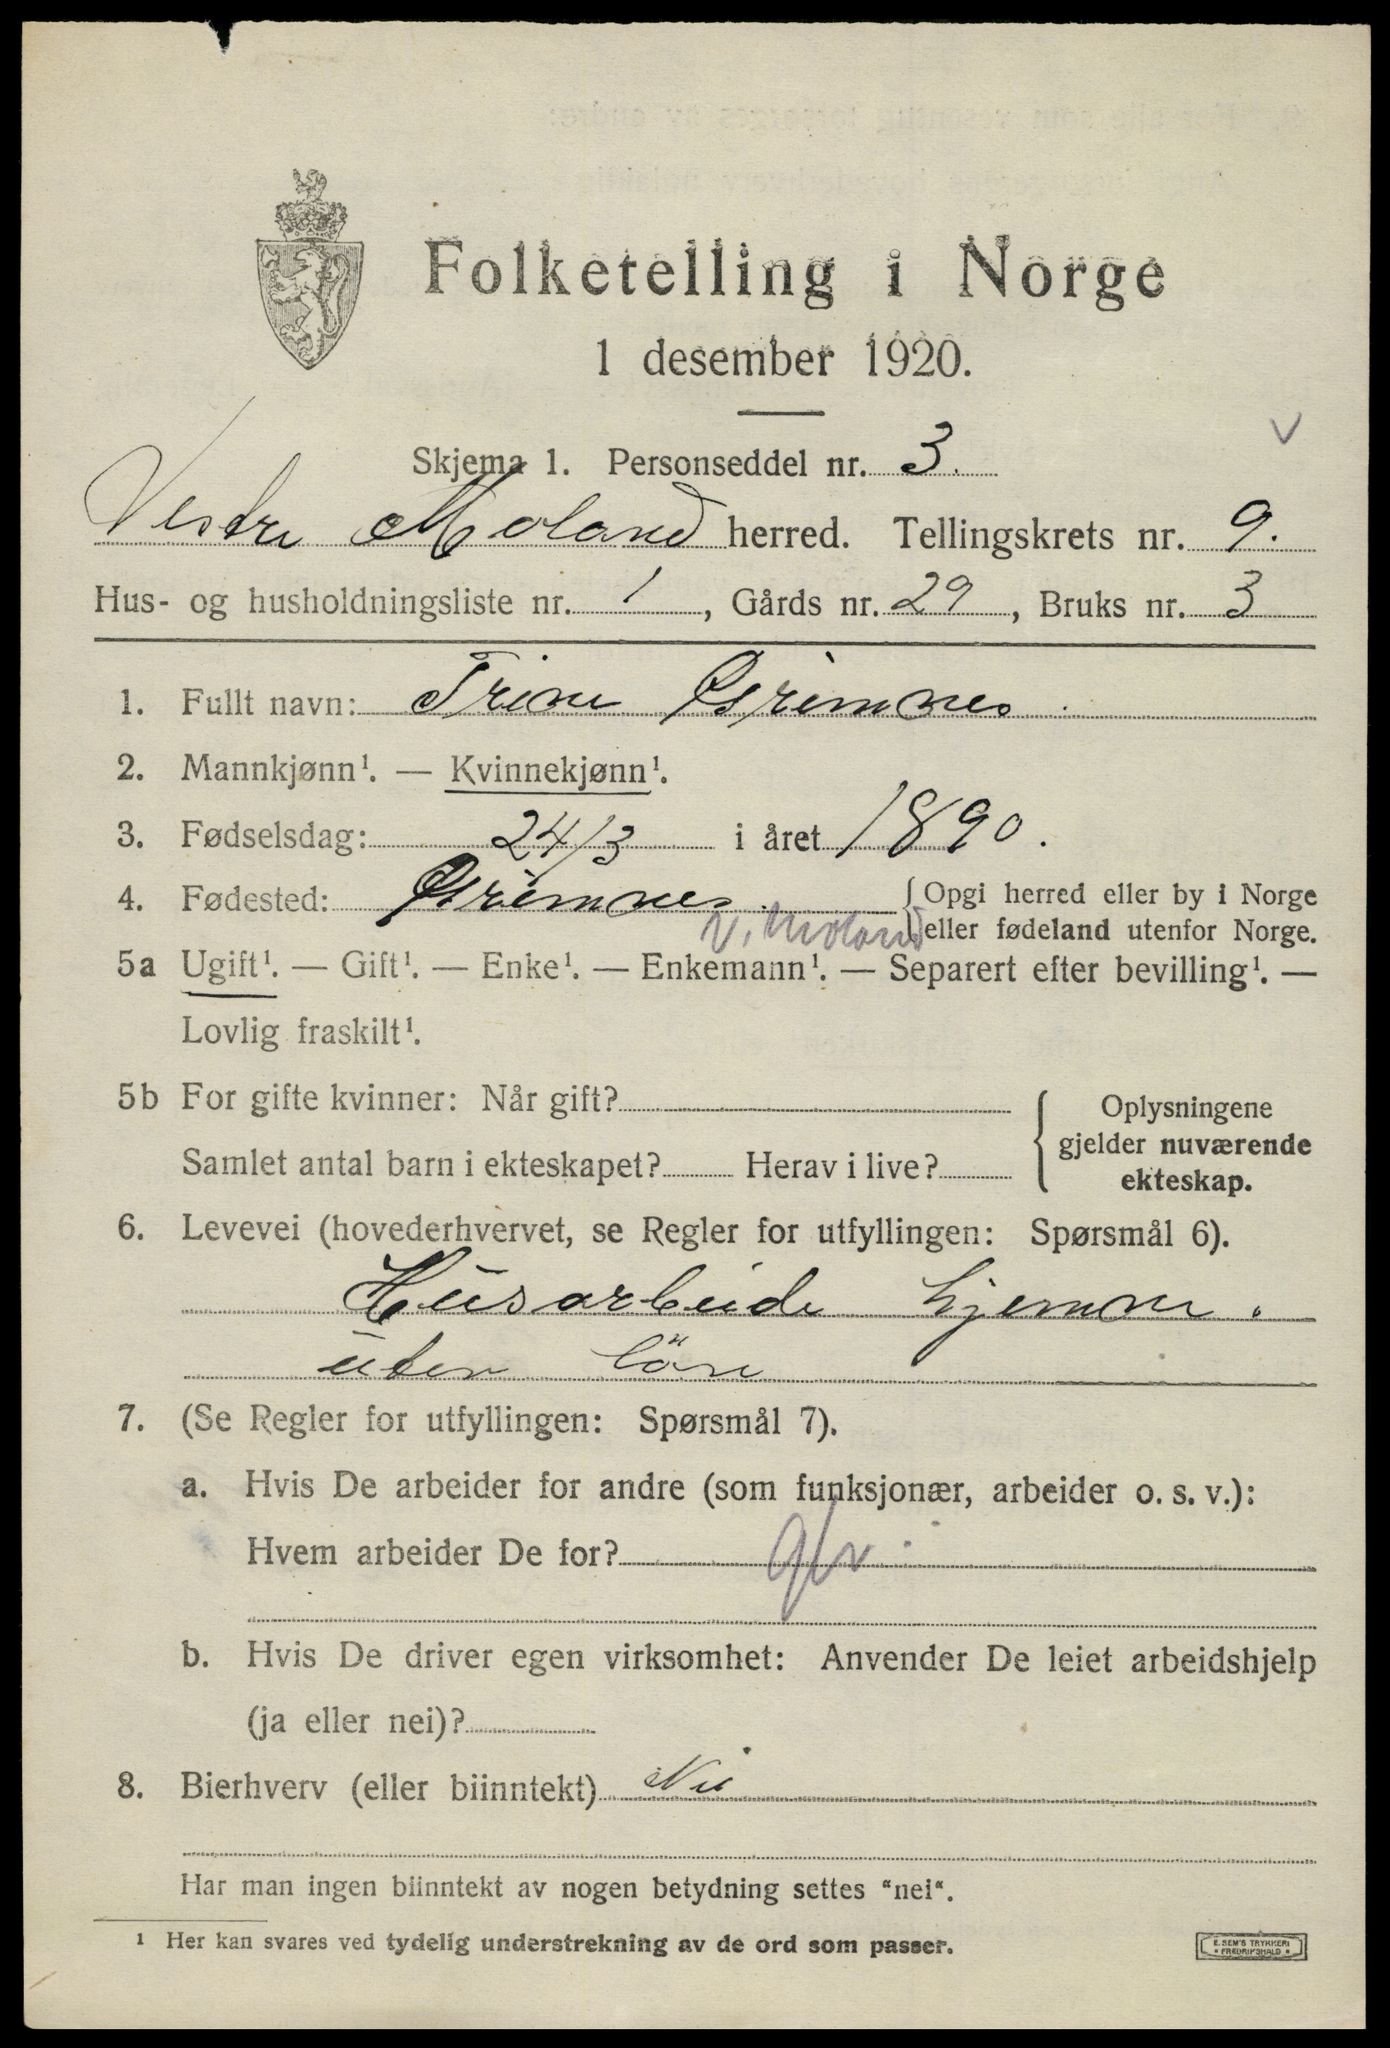 Folketelling i Norge
1 desember 1920.
Skjema 1. Personseddel nr. 3.
v
Vestre Moland herred. Tellingskrets nr. 9.
Hus- og husholdningsliste nr. 1, Gårds nr. 29, Bruks nr. 3
1. Fullt navn: Trine Grimnes
2. Mannkjønn¹. — Kvinnekjønn¹.
3. Fødselsdag: 24/3 i året 1890.
4. Fødested: Grimnes. { Opgi herred eller by i Norge
V. Moland eller fødeland utenfor Norge.
5a Ugift¹. — Gift¹. — Enke¹. — Enkemann¹. — Separert efter bevilling¹. —
Lovlig fraskilt¹.
5b For gifte kvinner: Når gift?
Samlet antal barn i ekteskapet? Herav i live?
Oplysningene
gjelder nuværende
ekteskap.
6. Levevei (hovederhvervet, se Regler for utfyllingen: Spørsmål 6).
Husarbeide hjemme.
uten løn
7. (Se Regler for utfyllingen: Spørsmål 7).
a. Hvis De arbeider for andre (som funksjonær, arbeider o. s. v.):
Hvem arbeider De for?
b. Hvis De driver egen virksomhet: Anvender De leiet arbeidshjelp
(ja eller nei)?
8. Bierhverv (eller biinntekt) Nei
Har man ingen biinntekt av nogen betydning settes "nei".
¹ Her kan svares ved tydelig understrekning av de ord som passer.
E. SEM'S TRYKKERI
FREDRIKSHALD